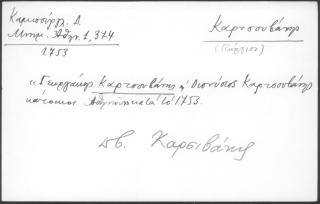 Καμπούρογλ. Δ.
Μνημ. Ἀθην. 1, 374
1753
Καρτσουβάνης
(Γεώργιος)
"Γεωργάκης Καρτσουβάνης ἢ Διονύσιος Καρτσουβάνης
κάτοικος Ἀθηνῶν κατὰ τὸ 1753.
πβ. Καρσιβάνης